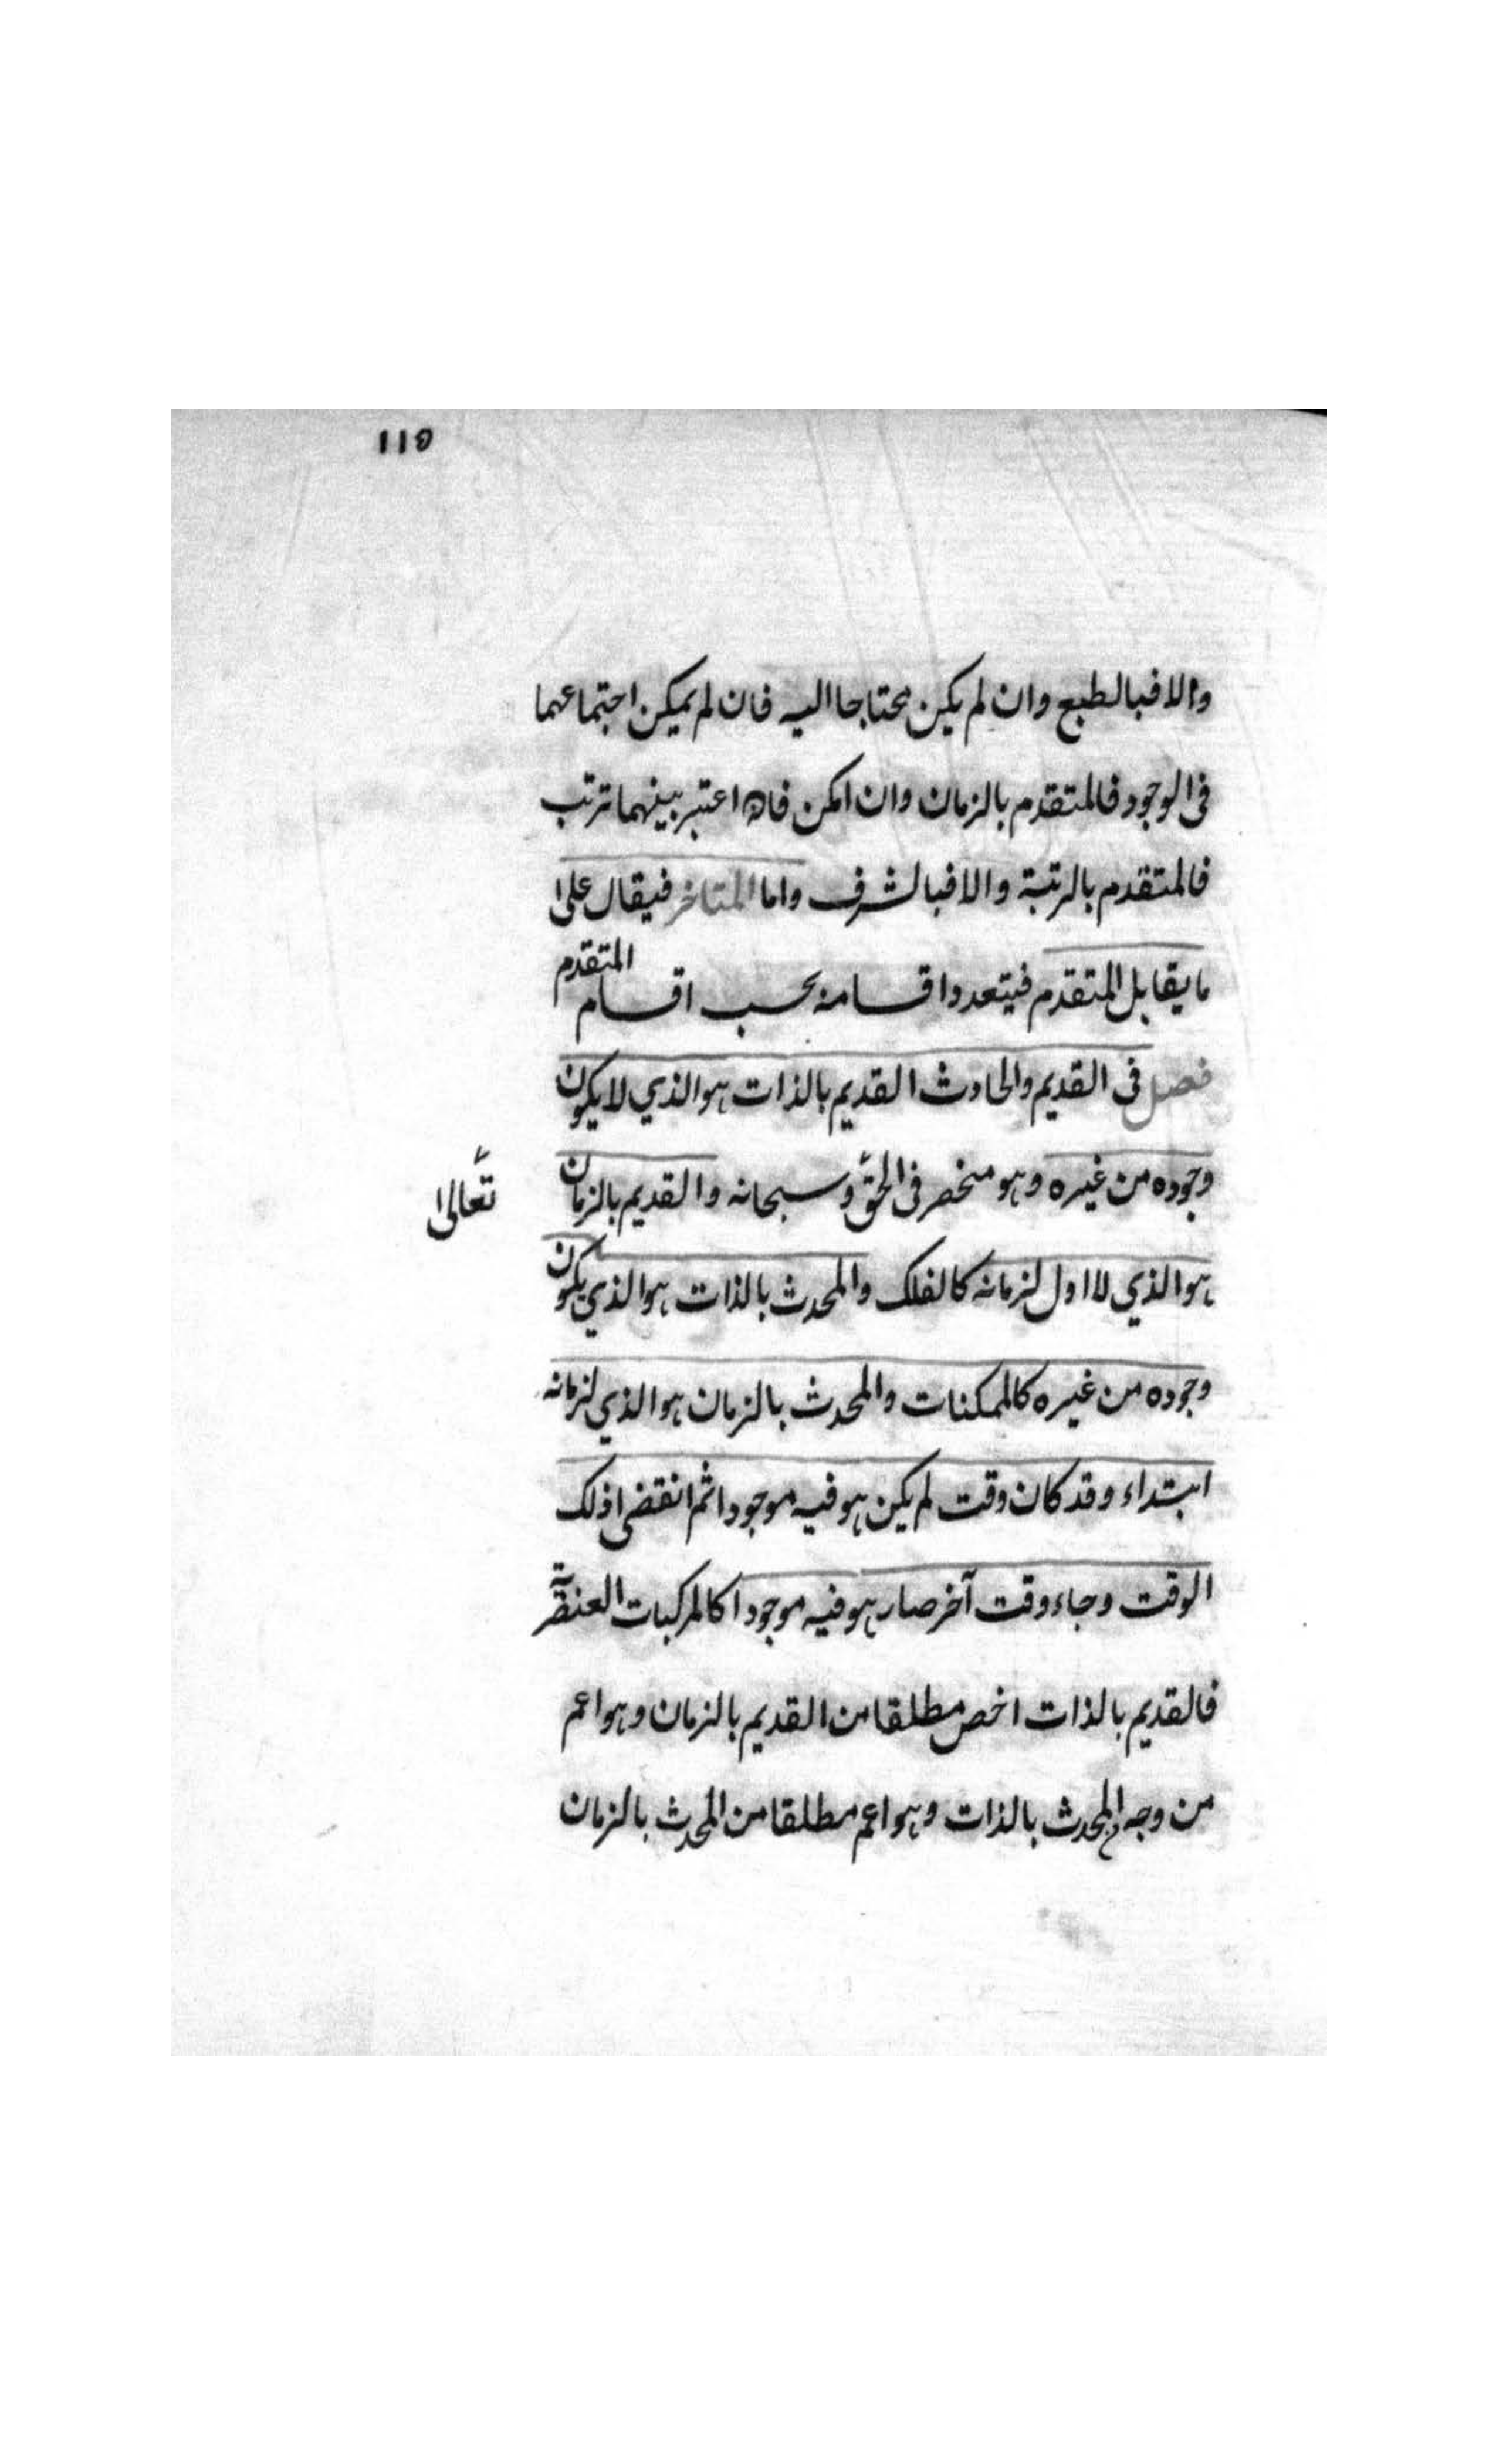 ١١٥
والا فبالطبع وان لم يكن محتاجا اليه فان لم يمكن اجتماعهما
فى الوجود فالمتقدم بالزمان وان امكن فان اعتبر بينهما ترتب
فالمتقدم بالرتبة والا فبالشرف واما المتاخر فيقال على
ما يقابل المتقدم فيتعدد اقسامه بحسب اقسام المتقدم
فصل فى القديم والحادث القديم بالذات هو الذي لا يكون
وجوده من غيره وهو منحصر فى الحق و سبحانه والقديم بالزمان
تعالى
هو الذي لا اول لزمانه كالفلك والمحدث بالذات هو الذي يكون
وجوده من غيره كالممكنات والمحدث بالزمان هو الذي لزمانه
ابتداء وقد كان وقت لم يكن هو فيه موجودا ثم انقضى ذلك
الوقت وجاء وقت آخر صار هو فيه موجودا كالمركبات العنصرية
فالقديم بالذات اخص مطلقا من القديم بالزمان وهو اعم
من وجه المحدث بالذات وهو اعم مطلقا من المحدث بالزمان